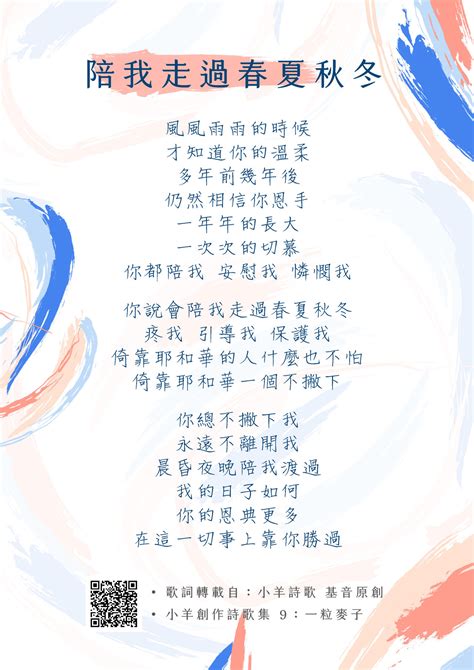 陪我走過春夏秋冬
風風雨雨的時候
才知道你的溫柔
多年前幾年後
仍然相信你恩手
一年年的長大
一次次的切慕
你都陪我 安慰我 憐憫我
你說會陪我走過春夏秋冬
疼我 引導我 保護我
倚靠耶和華的人什麼也不怕
倚靠耶和華一個不撇下
你總不撇下我
永遠不離開我
晨昏夜晚陪我渡過
我的日子如何
你的恩典更多
在這一切事上靠你勝過
• 歌詞轉載自：小羊詩歌 基音原創
• 小羊創作詩歌集 9：一粒麥子